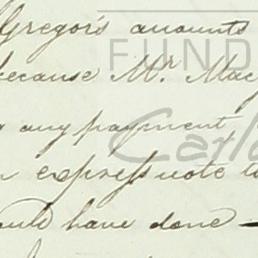 Gregor's amounts
because Mr. Mac
any payment
express vote to
ould have done —
FUND
Carlo